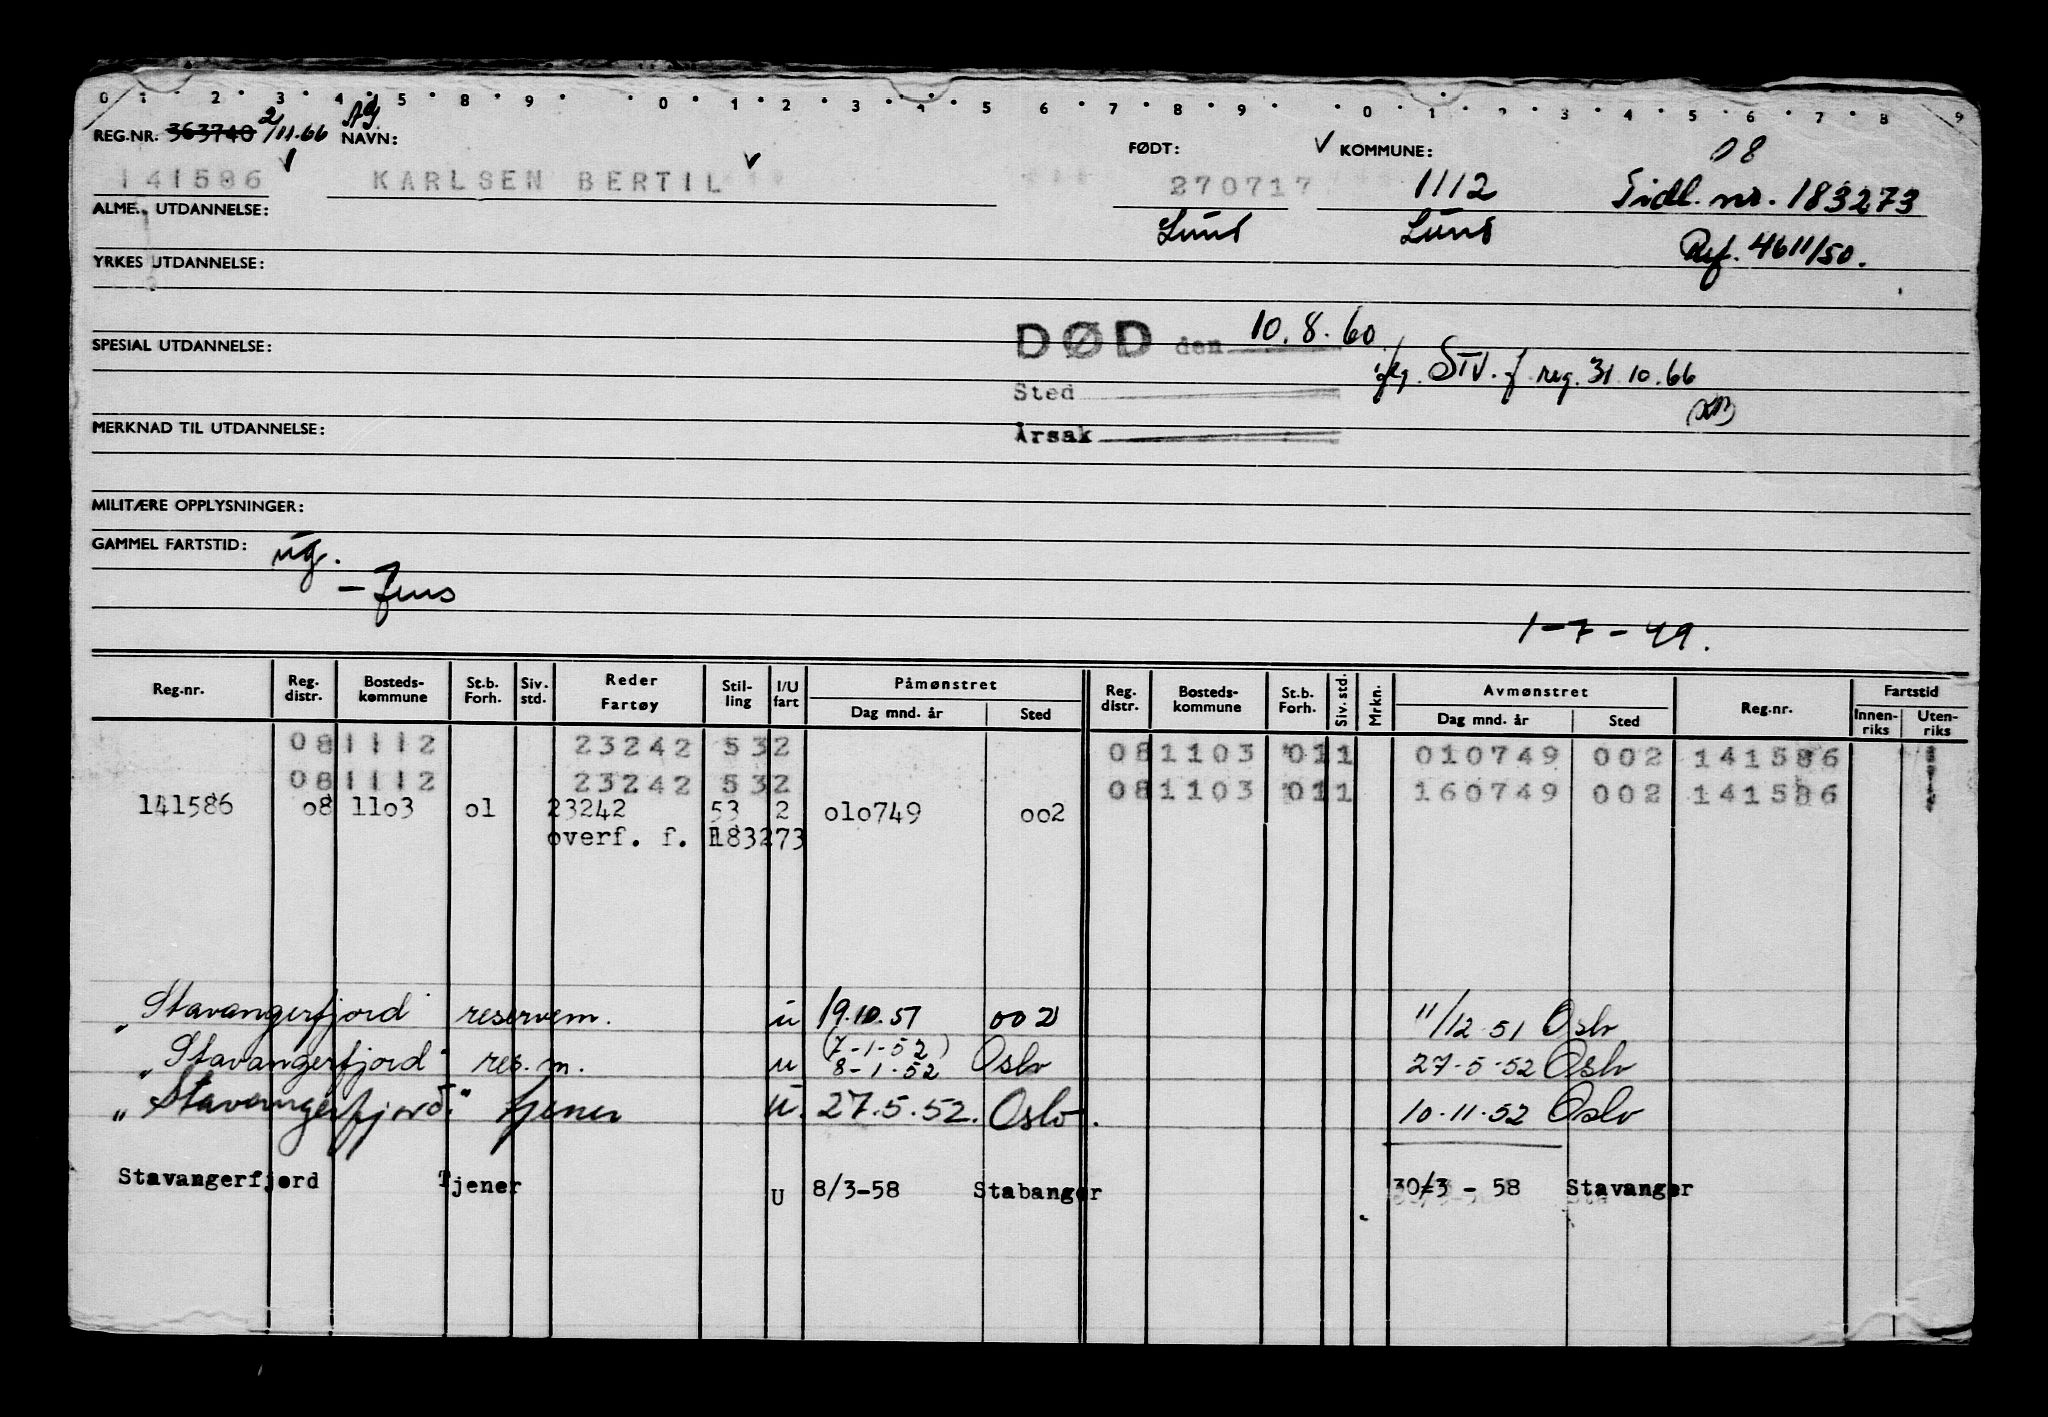 0 1 2 3 4 5 8 9 0 1 2 3 4 5 6 7 8 9 0 1 2 3 4 5 6 7 8 9
REG.NR. 363740 2/11.66 NAVN: FØDT: KOMMUNE: 08
141586 KARLSEN BERTIL 270717 1112 Tidl. nr. 183273
ALME. UTDANNELSE: Lund Lund
YRKES UTDANNELSE: Ref. 4611/50.
DØD den 10.8.60
SPESIAL UTDANNELSE: iflg. STV. f reg. 31.10.66
Sted
MERKNAD TIL UTDANNELSE: Årsak
MILITÆRE OPPLYSNINGER:
GAMMEL FARTSTID: ug.
1-7-49.
Reg.nr. Reg. distr. Bosteds- kommune St.b. Forh. Siv. std. Reder Fartøy Stil- ling I/U fart Påmønstret Dag mnd. år Sted Reg. distr. Bosteds- kommune St.b. Forh. Siv. std. Mrkn. Avmønstret Dag mnd. år Sted Reg.nr. Fartstid Innen- riks Uten- riks
081112 23242 532 081103 011 010749 002 141586
081112 23242 532 081103 011 160749 002 141586
141586 08 1103 01 23242 53 2 010749 002
overf. f. 183273
"Stavangerfjord" reservem. u 19.10.51 002 11/12 51 Oslo
(7-1-52)
"Stavangerfjord" res.m. u 8-1-52 Oslo 27-5-52 Oslo
"Stavangerfjord" tjener u. 27.5.52. Oslo. 10-11-52 Oslo
Stavangerfjord Tjener U 8/3-58 Stabanger 30/3 - 58 Stavanger